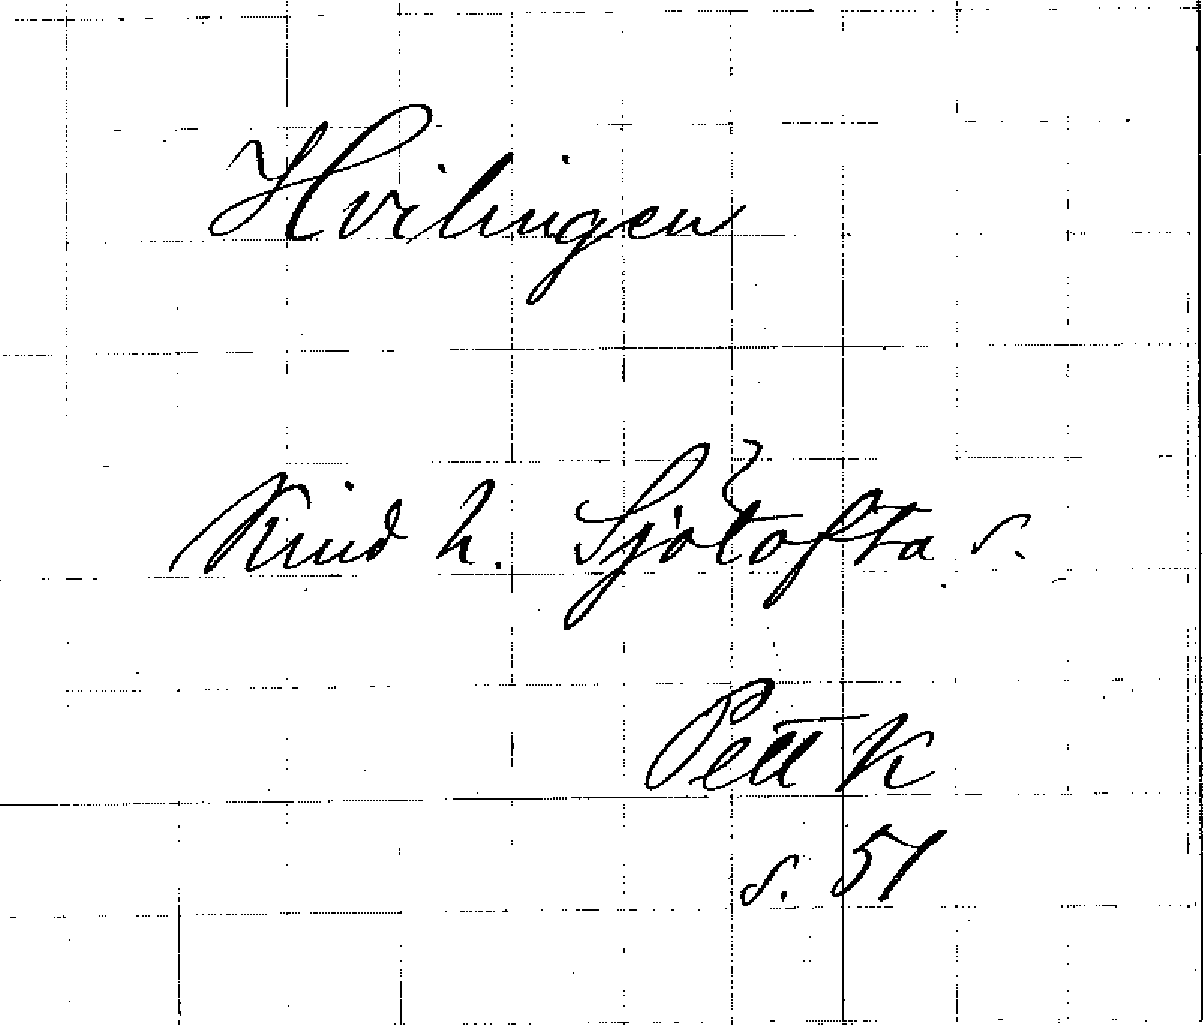 Hvilingen
Kind h. Sjötofta s.
Pett K
s. 51